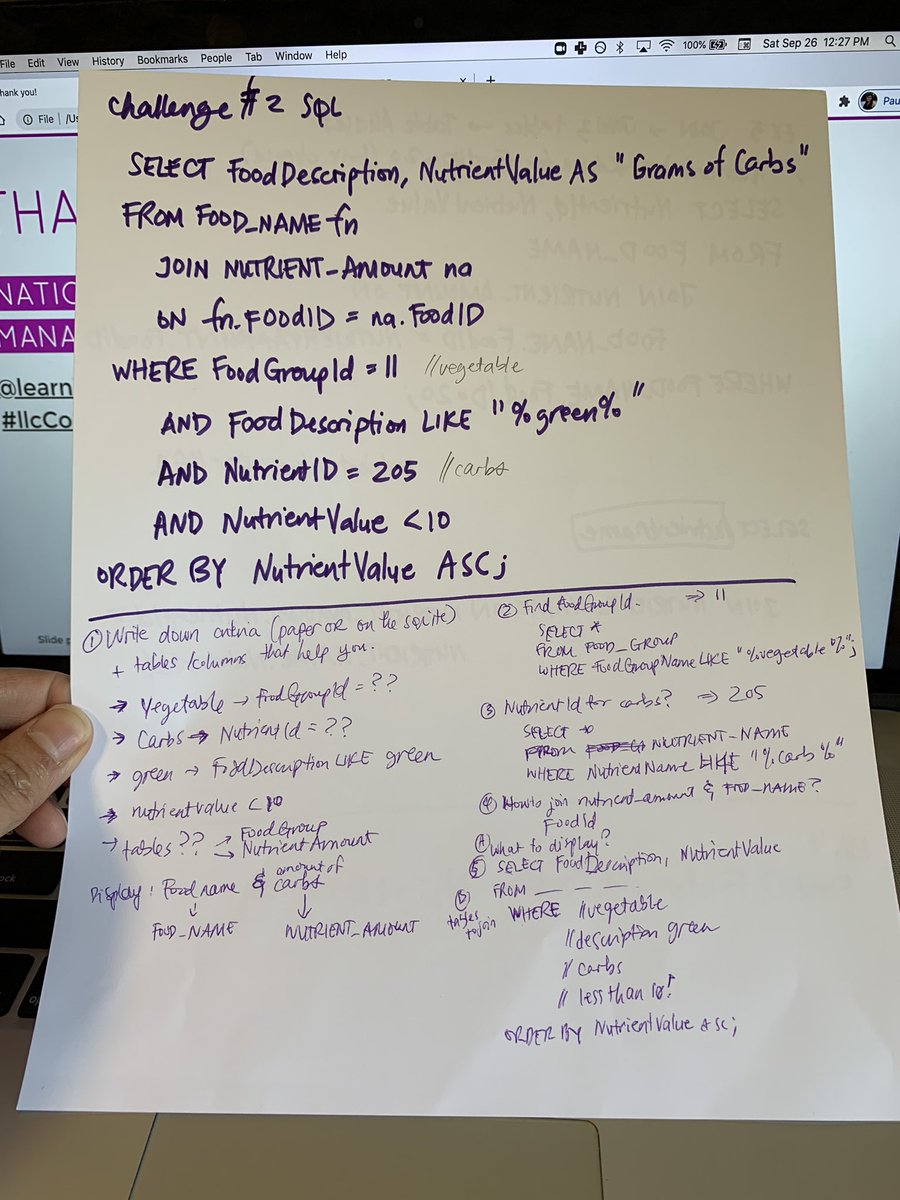 File Edit View History Bookmarks People Tab Window Help
100% Sat Sep 26 12:27 PM
hank you!
File /Us
Pau
THA
NATIO
MANA
@learn
#llcCo
Slide
Challenge #2 SQL
SELECT FoodDescription, NutrientValue AS "Grams of Carbs"
FROM FOOD_NAME fn
JOIN NUTRIENT_AMOUNT na
ON fn.FOODID = na.FoodID
WHERE FoodGroupId = 11 //vegetable
AND FoodDescription LIKE "%green%"
AND NutrientID = 205 //carbs
AND NutrientValue <10
ORDER BY NutrientValue ASC;
① Write down criteria (paper OR on the sqlite)
+ tables/columns that help you.
→ Vegetable → FoodGroupId = ??
→ Carbs → NutrientId = ??
→ green → FoodDescription LIKE green
→ nutrientvalue <10
→ tables?? → FoodGroup
→ NutrientAmount
Display: Food name & amount of carbs
↓ ↓
FOOD_NAME NUTRIENT_AMOUNT
② Find FoodGroupId. ⇒ 11
SELECT *
FROM FOOD_GROUP
WHERE FoodGroupName LIKE "%vegetable%";
③ NutrientId for carbs? ⇒ 205
SELECT *
FROM NUTRIENT_NAME
WHERE NutrientName LIKE "%carb%"
④ How to join nutrient_amount & FOOD_NAME?
FoodId
Ⓐ What to display?
⑤ SELECT FoodDescription, NutrientValue
FROM _ _ _ _
Ⓑ tables to join
WHERE //vegetable
//description green
// carbs
// less than 10!
ORDER BY NutrientValue ASC;